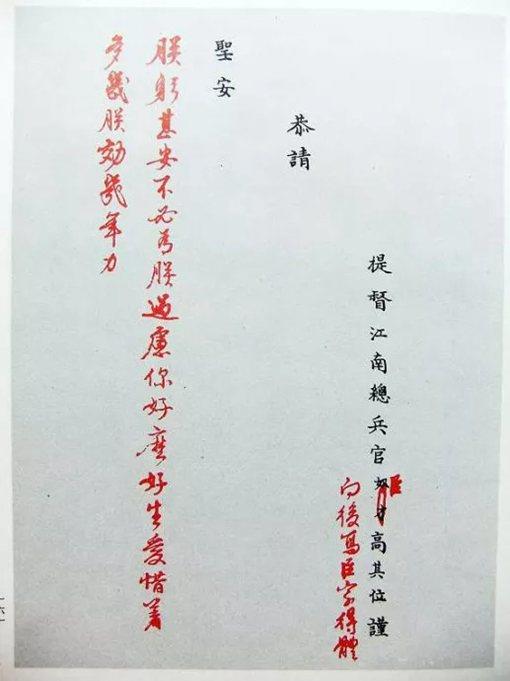 提督江南總兵官奴才高其位謹
臣
向後寫臣字得體
恭請
聖安
朕躬甚安不必為朕過慮你好麽好生愛惜着
多與朕効幾年力